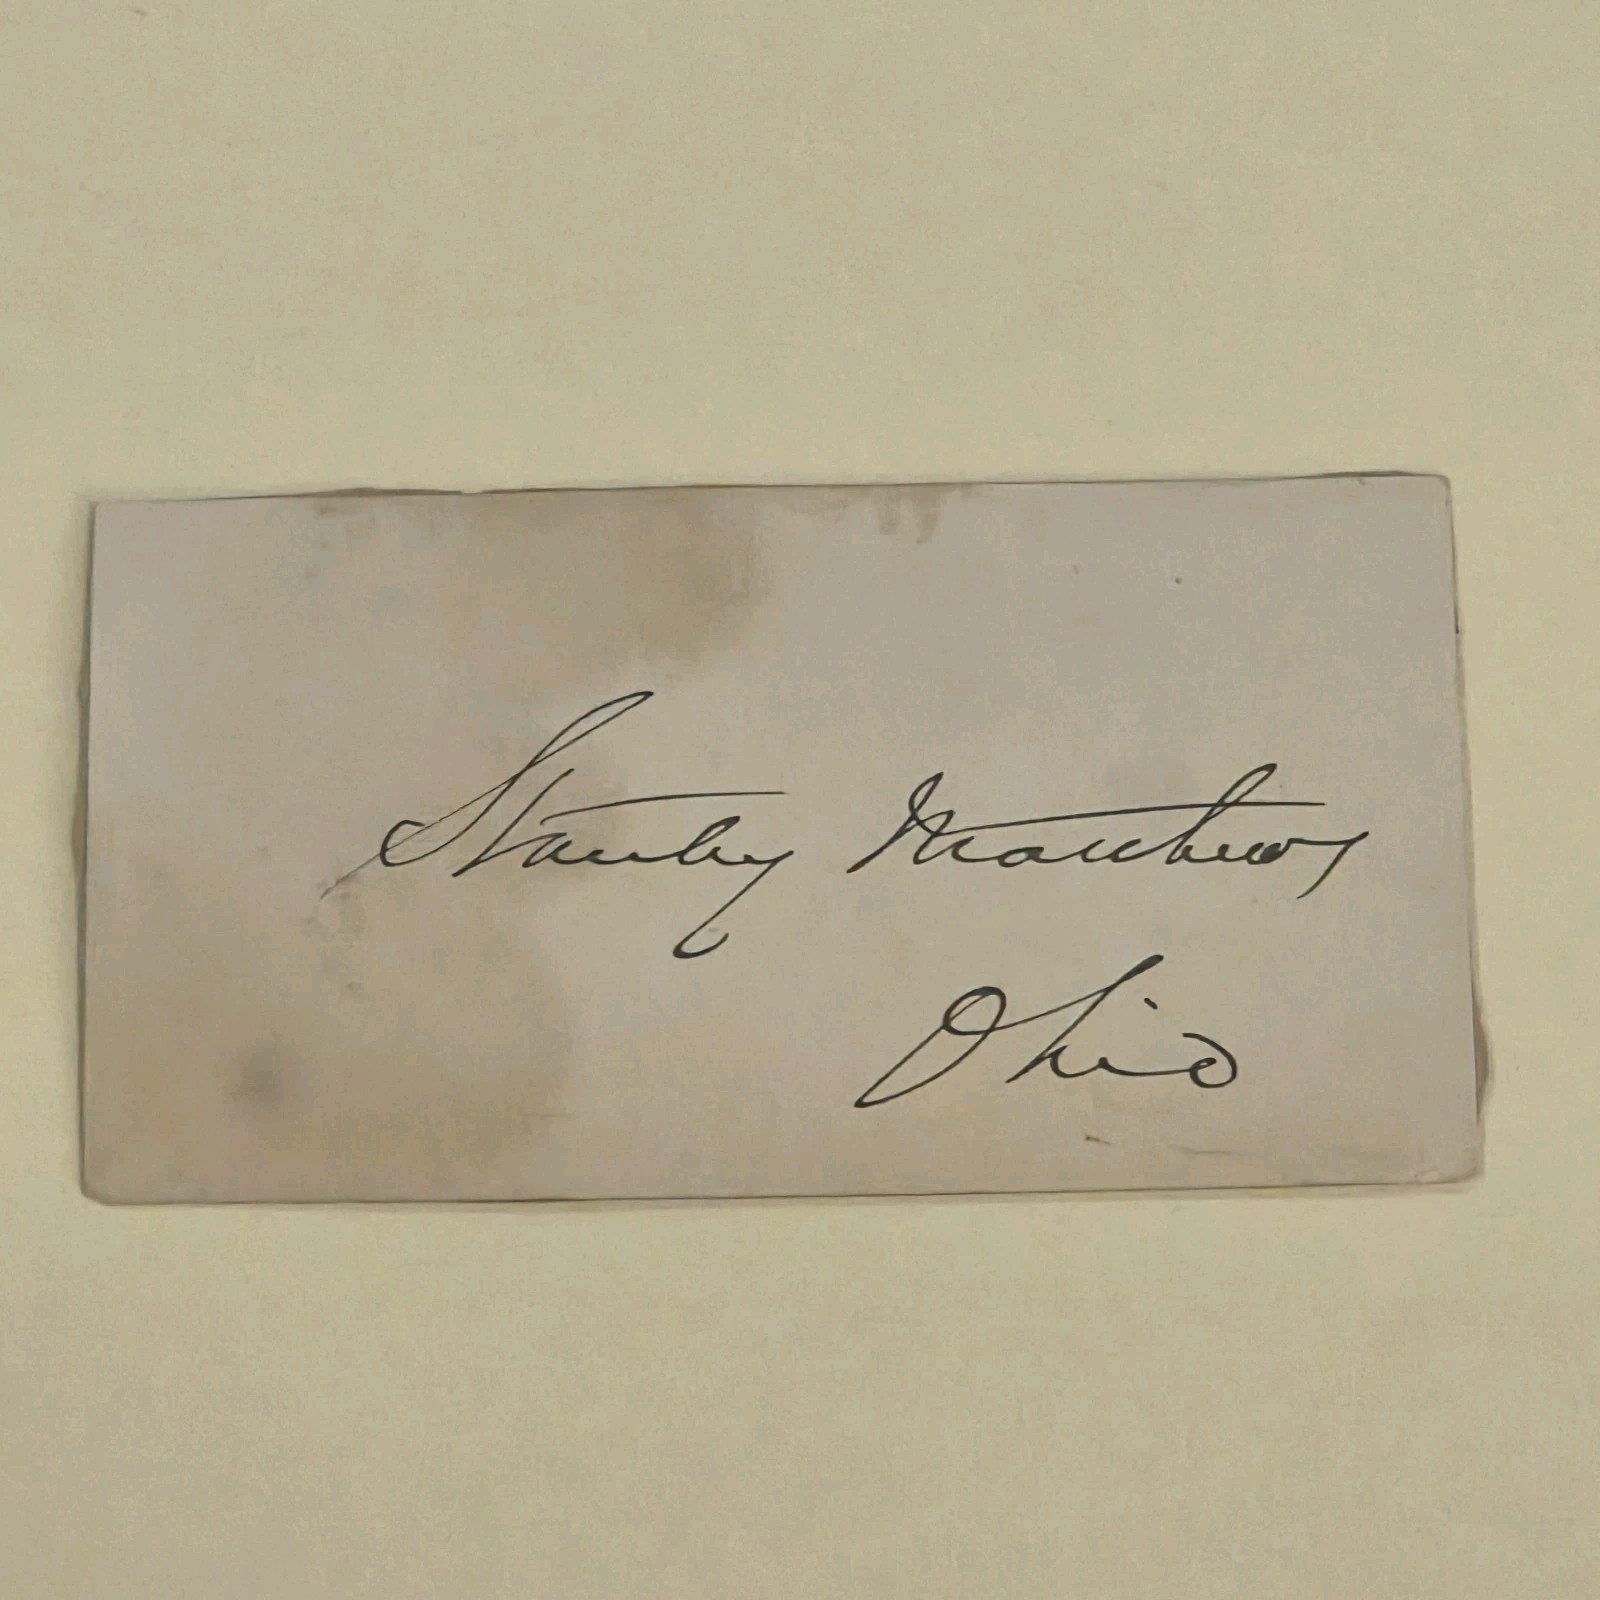 Stanley Matthews
Ohio